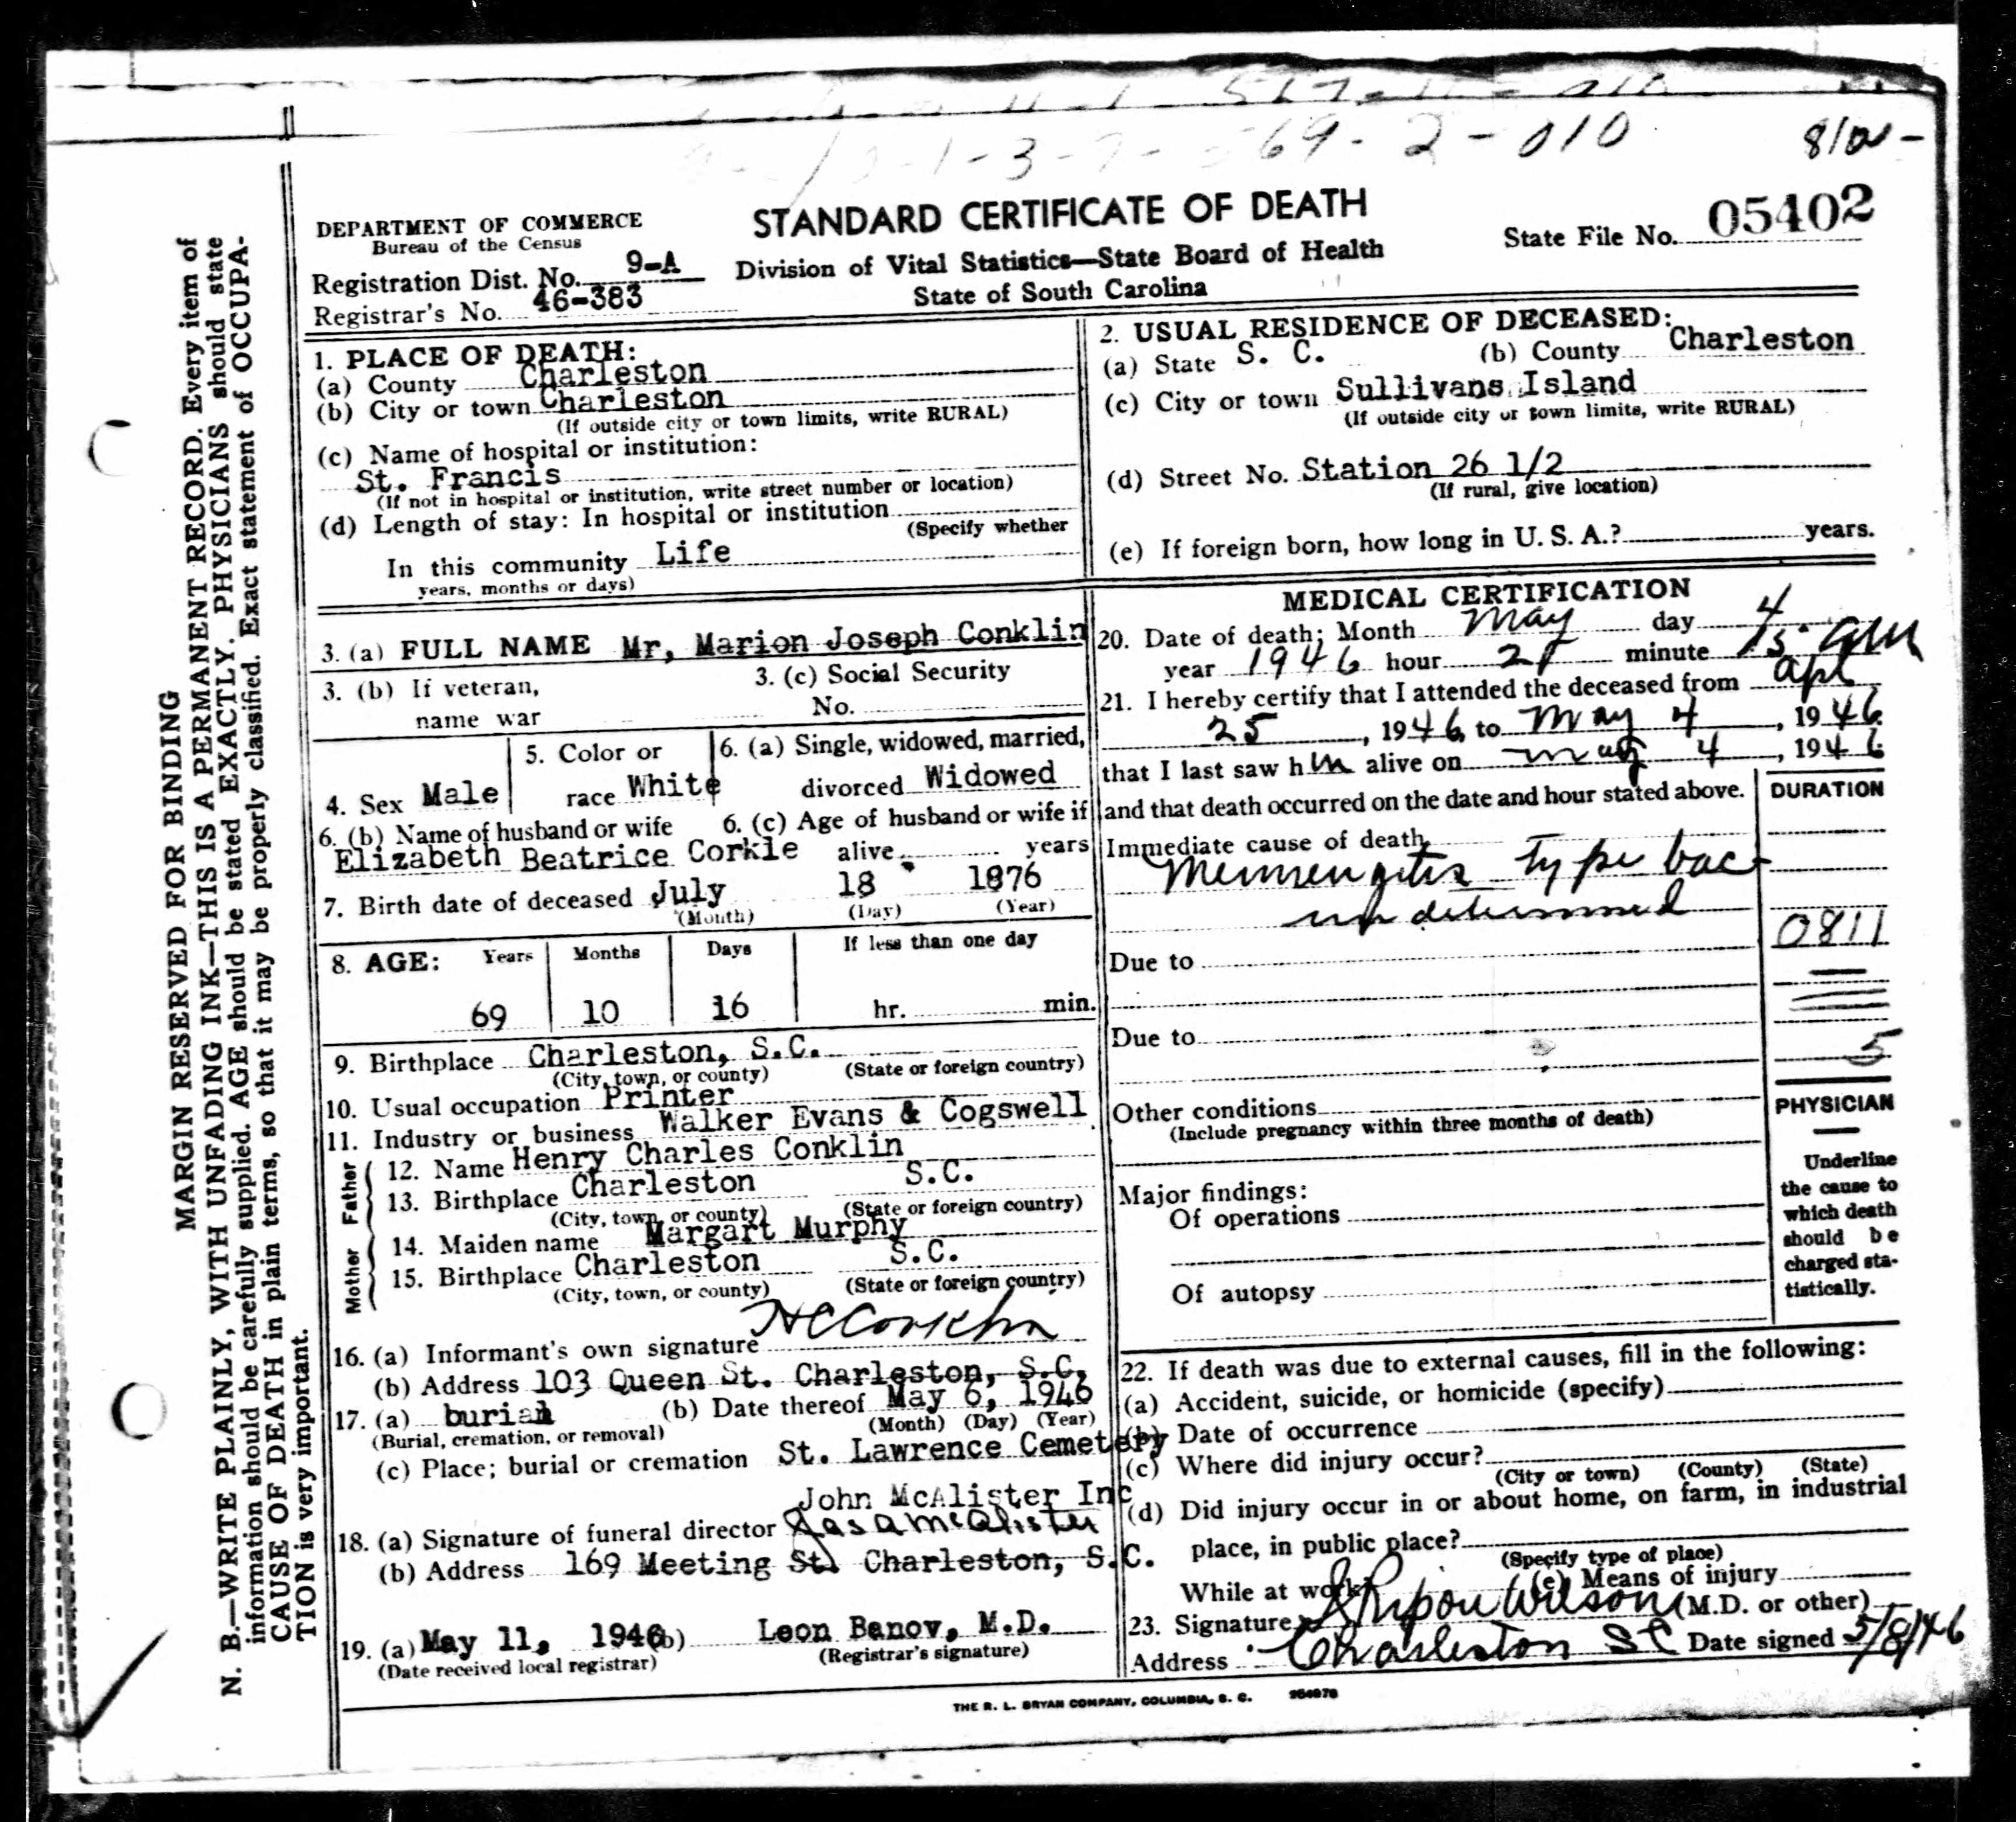 69-2-010
DEPARTMENT OF COMMERCE
Bureau of the Census
STANDARD CERTIFICATE OF DEATH
Division of Vital Statistics—State Board of Health
State of South Carolina
State File No. 05402
Registration Dist. No. 9-A
Registrar's No. 46-383
MARGIN RESERVED FOR BINDING
N. B.—WRITE PLAINLY, WITH UNFADING INK—THIS IS A PERMANENT RECORD. Every item of
information should be carefully supplied. AGE should be stated EXACTLY. PHYSICIANS should state
CAUSE OF DEATH in plain terms, so that it may be properly classified. Exact statement of OCCUPA-
TION is very important.
1. PLACE OF DEATH:
(a) County Charleston
(b) City or town Charleston
(If outside city or town limits, write RURAL)
(c) Name of hospital or institution:
St. Francis
(If not in hospital or institution, write street number or location)
(d) Length of stay: In hospital or institution
(Specify whether
In this community Life
years, months or days)
2. USUAL RESIDENCE OF DECEASED:
(a) State S. C. (b) County Charleston
(c) City or town Sullivans Island
(If outside city or town limits, write RURAL)
(d) Street No. Station 26 1/2
(If rural, give location)
(e) If foreign born, how long in U. S. A.? years.
3. (a) FULL NAME Mr, Marion Joseph Conklin
3. (b) If veteran,
name war
3. (c) Social Security
No.
4. Sex Male
5. Color or
race White
6. (a) Single, widowed, married,
divorced Widowed
6. (b) Name of husband or wife
Elizabeth Beatrice Corkle
6. (c) Age of husband or wife if
alive years
7. Birth date of deceased July 18 1876
(Month) (Day) (Year)
8. AGE: Years Months Days If less than one day
69 10 16 hr. min.
9. Birthplace Charleston, S.C.
(City, town, or county) (State or foreign country)
10. Usual occupation Printer
11. Industry or business Walker Evans & Cogswell
Father
12. Name Henry Charles Conklin
13. Birthplace Charleston S.C.
(City, town, or county) (State or foreign country)
Mother
14. Maiden name Margart Murphy
15. Birthplace Charleston S.C.
(City, town, or county) (State or foreign country)
16. (a) Informant's own signature H C Conklin
(b) Address 103 Queen St. Charleston, S.C.
17. (a) burial (b) Date thereof May 6, 1946
(Burial, cremation, or removal) (Month) (Day) (Year)
(c) Place; burial or cremation St. Lawrence Cemetery
John McAlister Inc
18. (a) Signature of funeral director Jas A McAlister
(b) Address 169 Meeting St. Charleston, S.C.
19. (a) May 11, 1946 (b) Leon Banov, M.D.
(Date received local registrar) (Registrar's signature)
MEDICAL CERTIFICATION
20. Date of death: Month May day 4
year 1946 hour 2 minute 15 am
21. I hereby certify that I attended the deceased from Apl
25, 1946, to May 4, 1946
that I last saw him alive on May 4, 1946
and that death occurred on the date and hour stated above.
DURATION
Immediate cause of death
Menengitis type bac
undetermined
0811
Due to
Due to
5
Other conditions
(Include pregnancy within three months of death)
PHYSICIAN
Underline
the cause to
which death
should be
charged sta-
tistically.
Major findings:
Of operations
Of autopsy
22. If death was due to external causes, fill in the following:
(a) Accident, suicide, or homicide (specify)
(b) Date of occurrence
(c) Where did injury occur?
(City or town) (County) (State)
(d) Did injury occur in or about home, on farm, in industrial
place, in public place?
(Specify type of place)
While at work? (e) Means of injury
23. Signature Wilson (M.D. or other)
Address Charleston SC Date signed 5/8/46
THE R. L. BRYAN COMPANY, COLUMBIA, S. C.